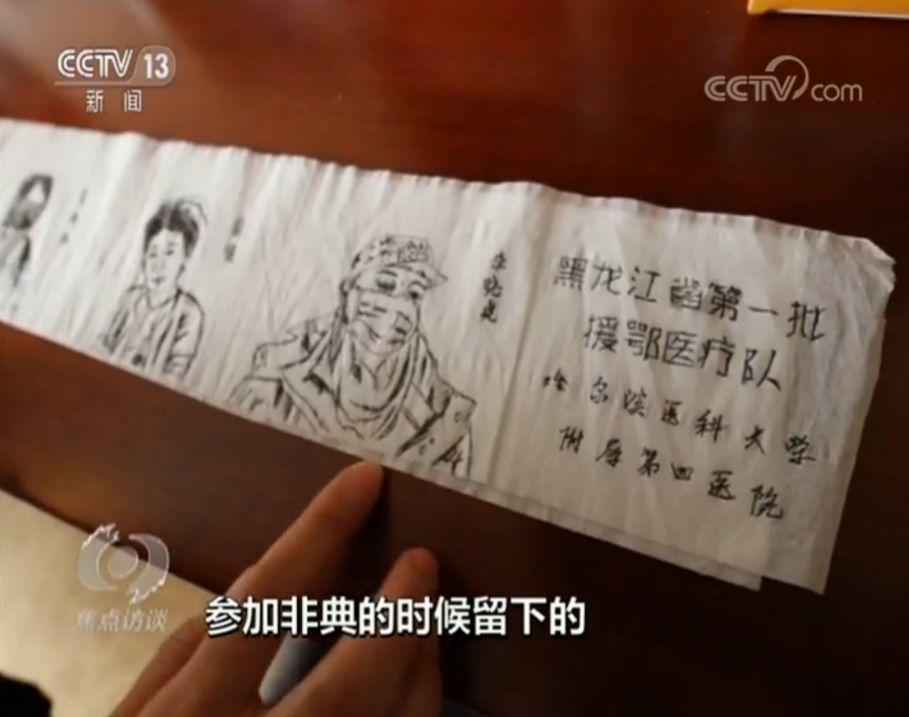 CCTV 13
新闻
CCTV.com
李晓昆
黑龙江省第一批
援鄂医疗队
哈尔滨医科大学
附属第四医院
焦点访谈
参加非典的时候留下的